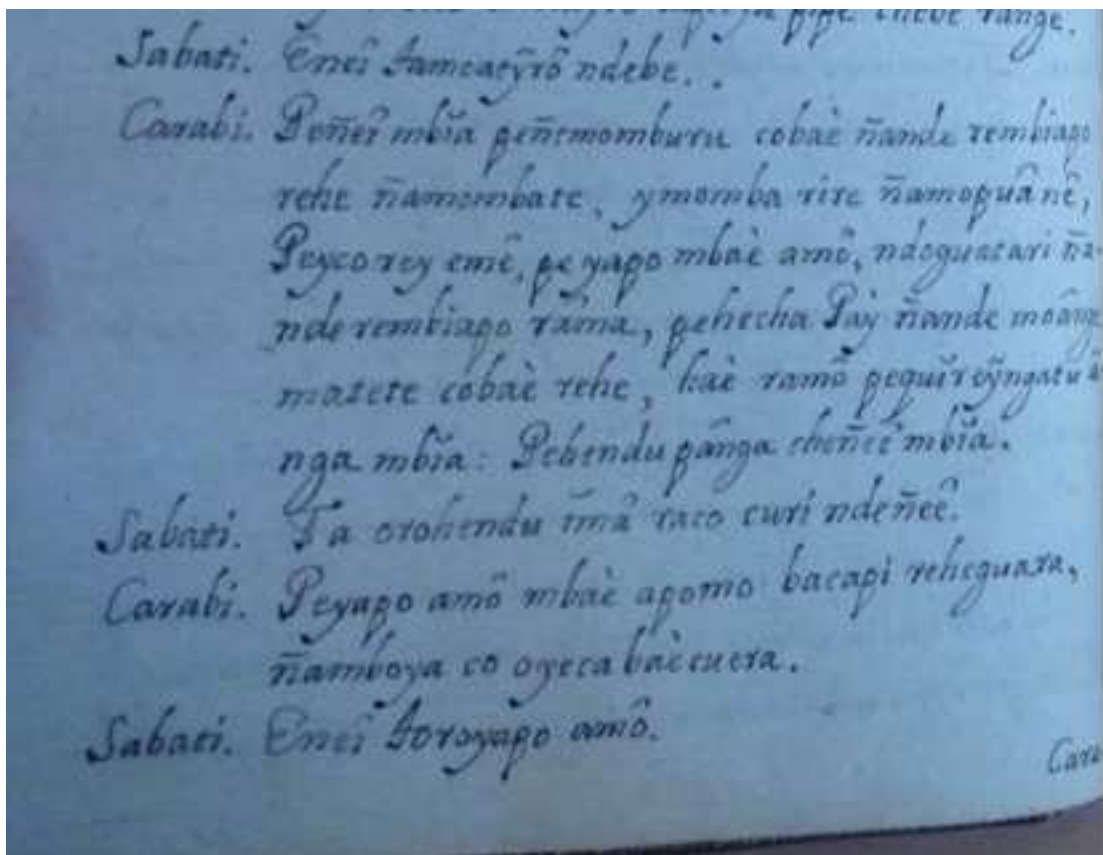 pipe chebe range.
Sabati. Eneî tameaeỹrô ndebe. .
Carabi. Peñeî mbĭa peñemomburu cobaè ñande rembiapo
rehe ñamombate, ymomba rire ñamopuânê,
Peyco rey emê, pe yapo mbaè amô, ndoguatari ña-
nde rembiapo rama, pehecha Paỳ ñande moânge
matete cobaè rehe, haè ramô pequĭreỹngatu â-
nga mbĭa: Pehendu pânga cheñeê mbĭa.
Sabati. Ta orohendu ĩmâ raco curi ndeñeê.
Carabi. Peyapo amô mbaè apomo bacapi reheguara,
ñamboya co oyeca baècuera.
Sabati. Eneî toroyapo amô.
Cara